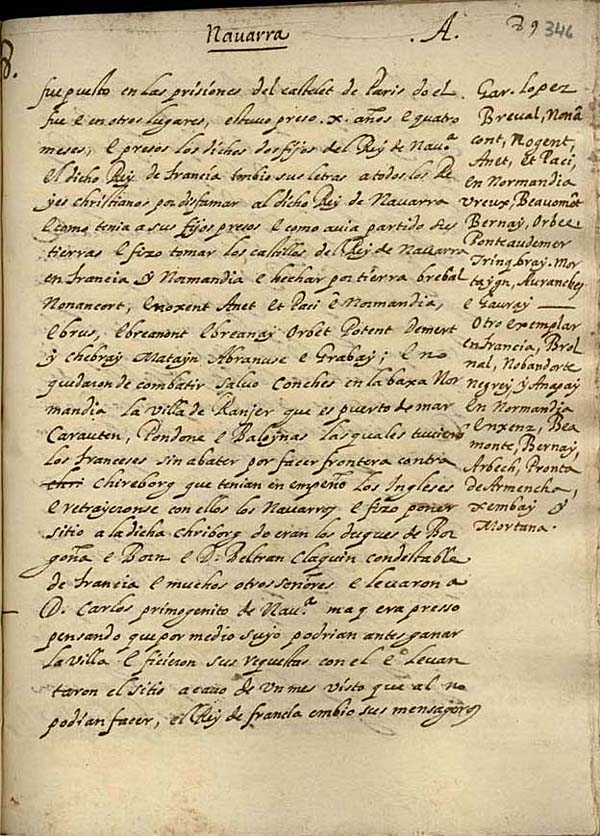 Navarra
.A.
39
346
8.
fue puesto en las prisiones del castelet de Paris do el
fue e en otros lugares, estuvo preso .x. años e quatro
meses, e presos los dichos dos fijos del Rey de Navª
el dicho Rey de francia enbio sus letras a todos los Re
yes christianos por disfamar al dicho Rey de Navarra
e como tenia a sus fijos presos e como avia partido sus
tierras e fizo tomar los castillos del Rey de Navarra
en francia y Normandia e hechar por tierra brebal
Nonancort, Enoxent Anet et Paci e Normandia,
Ebrus, Ebreanont Ebreanay Orbet Potent demert
y chebray Matayn Abranuse e Grabay; E no
quedaron de combatir salvo Conches en la baxa Nor
mandia la villa de Ranjer que es puerto de mar
Carauten, Pondone e Baloynas las quales tuviero
los franceses sin abater por facer frontera contra
Chireborg que tenian en empeño los Ingleses
e retrayeronse con ellos los Navarros e fizo poner
sitio a la dicha Chriborg do eran los duques de Bor
goña e Born e D. Beltran Claquin condestable
de francia e muchos otros señores e levaron a
D. Carlos primogenito de Navª maq era presso
pensando que por medio suyo podrian antes ganar
la villa e ficieron sus requestas con el e Levan
taron el sitio a cavo de un mes visto que al no
podian facer, el Rey de francia embio sus mensageros
Gar. Lopez
Breval, Nonā
cont, Nogent,
Anet, et Paci,
en Normandia
vreux, Beaumōt
Bernay, Orbee
Ponteaudemer
Tringbray. Mor
taygn, Auranches
e Gauray
Otro exemplar
en francia, Brol
nal, Nobandorte
negrey, y Anapay
En Normandia
Enxenz, Bea
monte, Bernay,
Arbech, Pronta
de Armencha,
xembay y
Mortana.